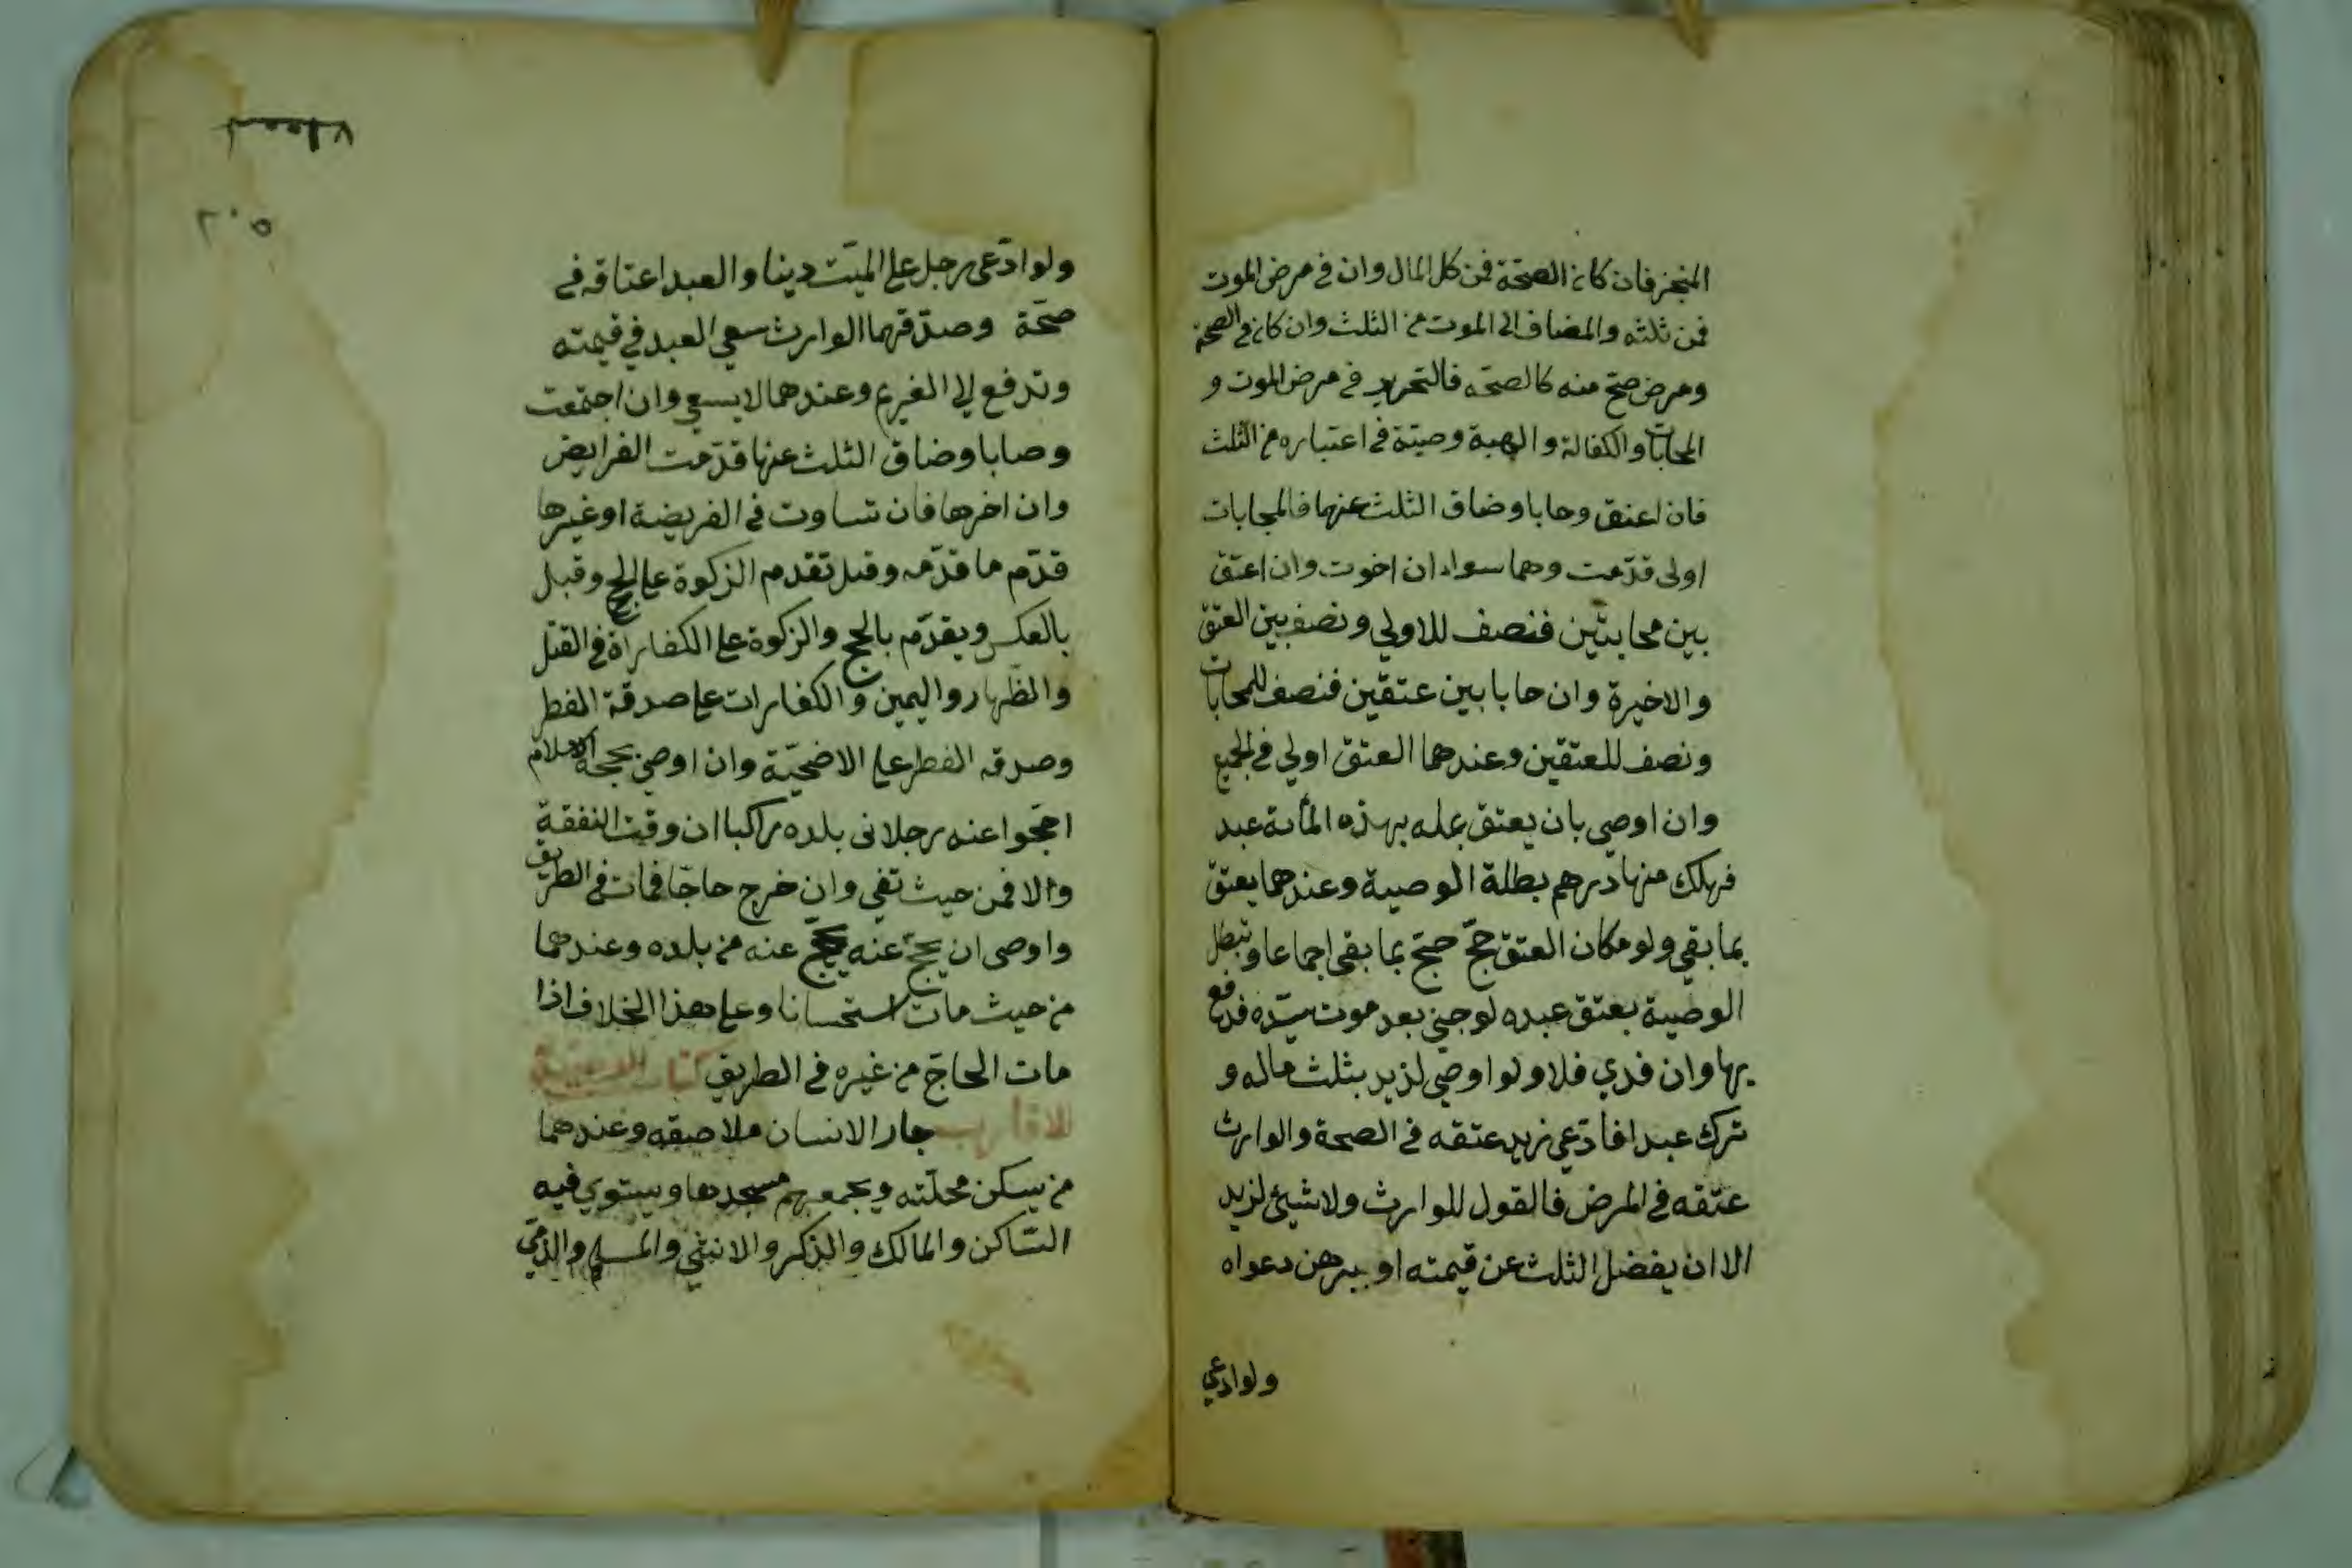 المنجز فان كان في الصحّة فمن كل المال وان في مرض الموت
فمن ثلثه والمضاف الى الموت من الثلث وان كان في الصحة
ومرض صحّ منه كالصحّه فالتحرير في مرض الموت و
المحابات والكفالة والهبة وصيّة في اعتباره من الثلث
فان اعتق وحابا وضاق الثلث عنهما فالمحابات
اولى قدّمت وهما سواء ان اخرت وان اعتق
بين محابتين فنصف للاولي ونصف بين العتق
والاخيرة وان حابا بين عتقين فنصف للمحابات
ونصف للعتقين وعندهما العتق اولي في الجميع
وان اوصي بان يعتق عليه بهذه المأية عبد
فهلك منها درهم بطلة الوصية وعندهما يعتق
بما بقي ولو مكان العتق حجّ حجّ بما بقي اجماعا وتبطل
الوصية بعتق عبده لو جني بعد موت سيّده فدفع
بها وان فدي فلا ولو اوصي لزيد بثلث ماله و
ترك عبدا فادّعي زيد عتقه في الصحة والوارث
عتقه في المرض فالقول للوارث ولا شيئ لزيد
الا ان يفضل الثلث عن قيمته او يبرهن دعواه
ولو ادعي
٢٠٥
ولو ادّعى رجل علي الميّت دينا والعبد اعتاقه في
صحّة وصدّقهما الوارث سعي العبد في قيمته
وتدفع الي الغريم وعندهما لا يسعي وان اجتمعت
وصايا وضاق الثلث عنها قدّمت الفرايض
وان اخرها فان تساوت في الفريضة او غيرها
قدّم ما قدّمه وقيل تقدم الزكوة علي الحج وقيل
بالعكس ويقدّم بالحج والزكوة علي الكفاراة في القتل
والظهار واليمين والكفارات علي صدقة الفطر
وصدقه الفطر علي الاضحيّة وان اوصي بحجة الاسلام
احجّوا عنه رجلا في بلده راكبا ان وفت النفقة
والا فمن حيث تفي وان خرج حاجّا فمات في الطريق
واوصى ان يحجّ عنه يحجّ عنه من بلده وعندهما
من حيث مات استحسانا وعلي هذا الخلاف اذا
مات الحاجّ من غيره في الطريق
للاقارب جار الانسان ملاصقه وعندهما
من يسكن محلّته ويجمعهم مسجدها ويستوي فيه
السّاكن والمالك والذكر والانثي والمسلم والذمّي